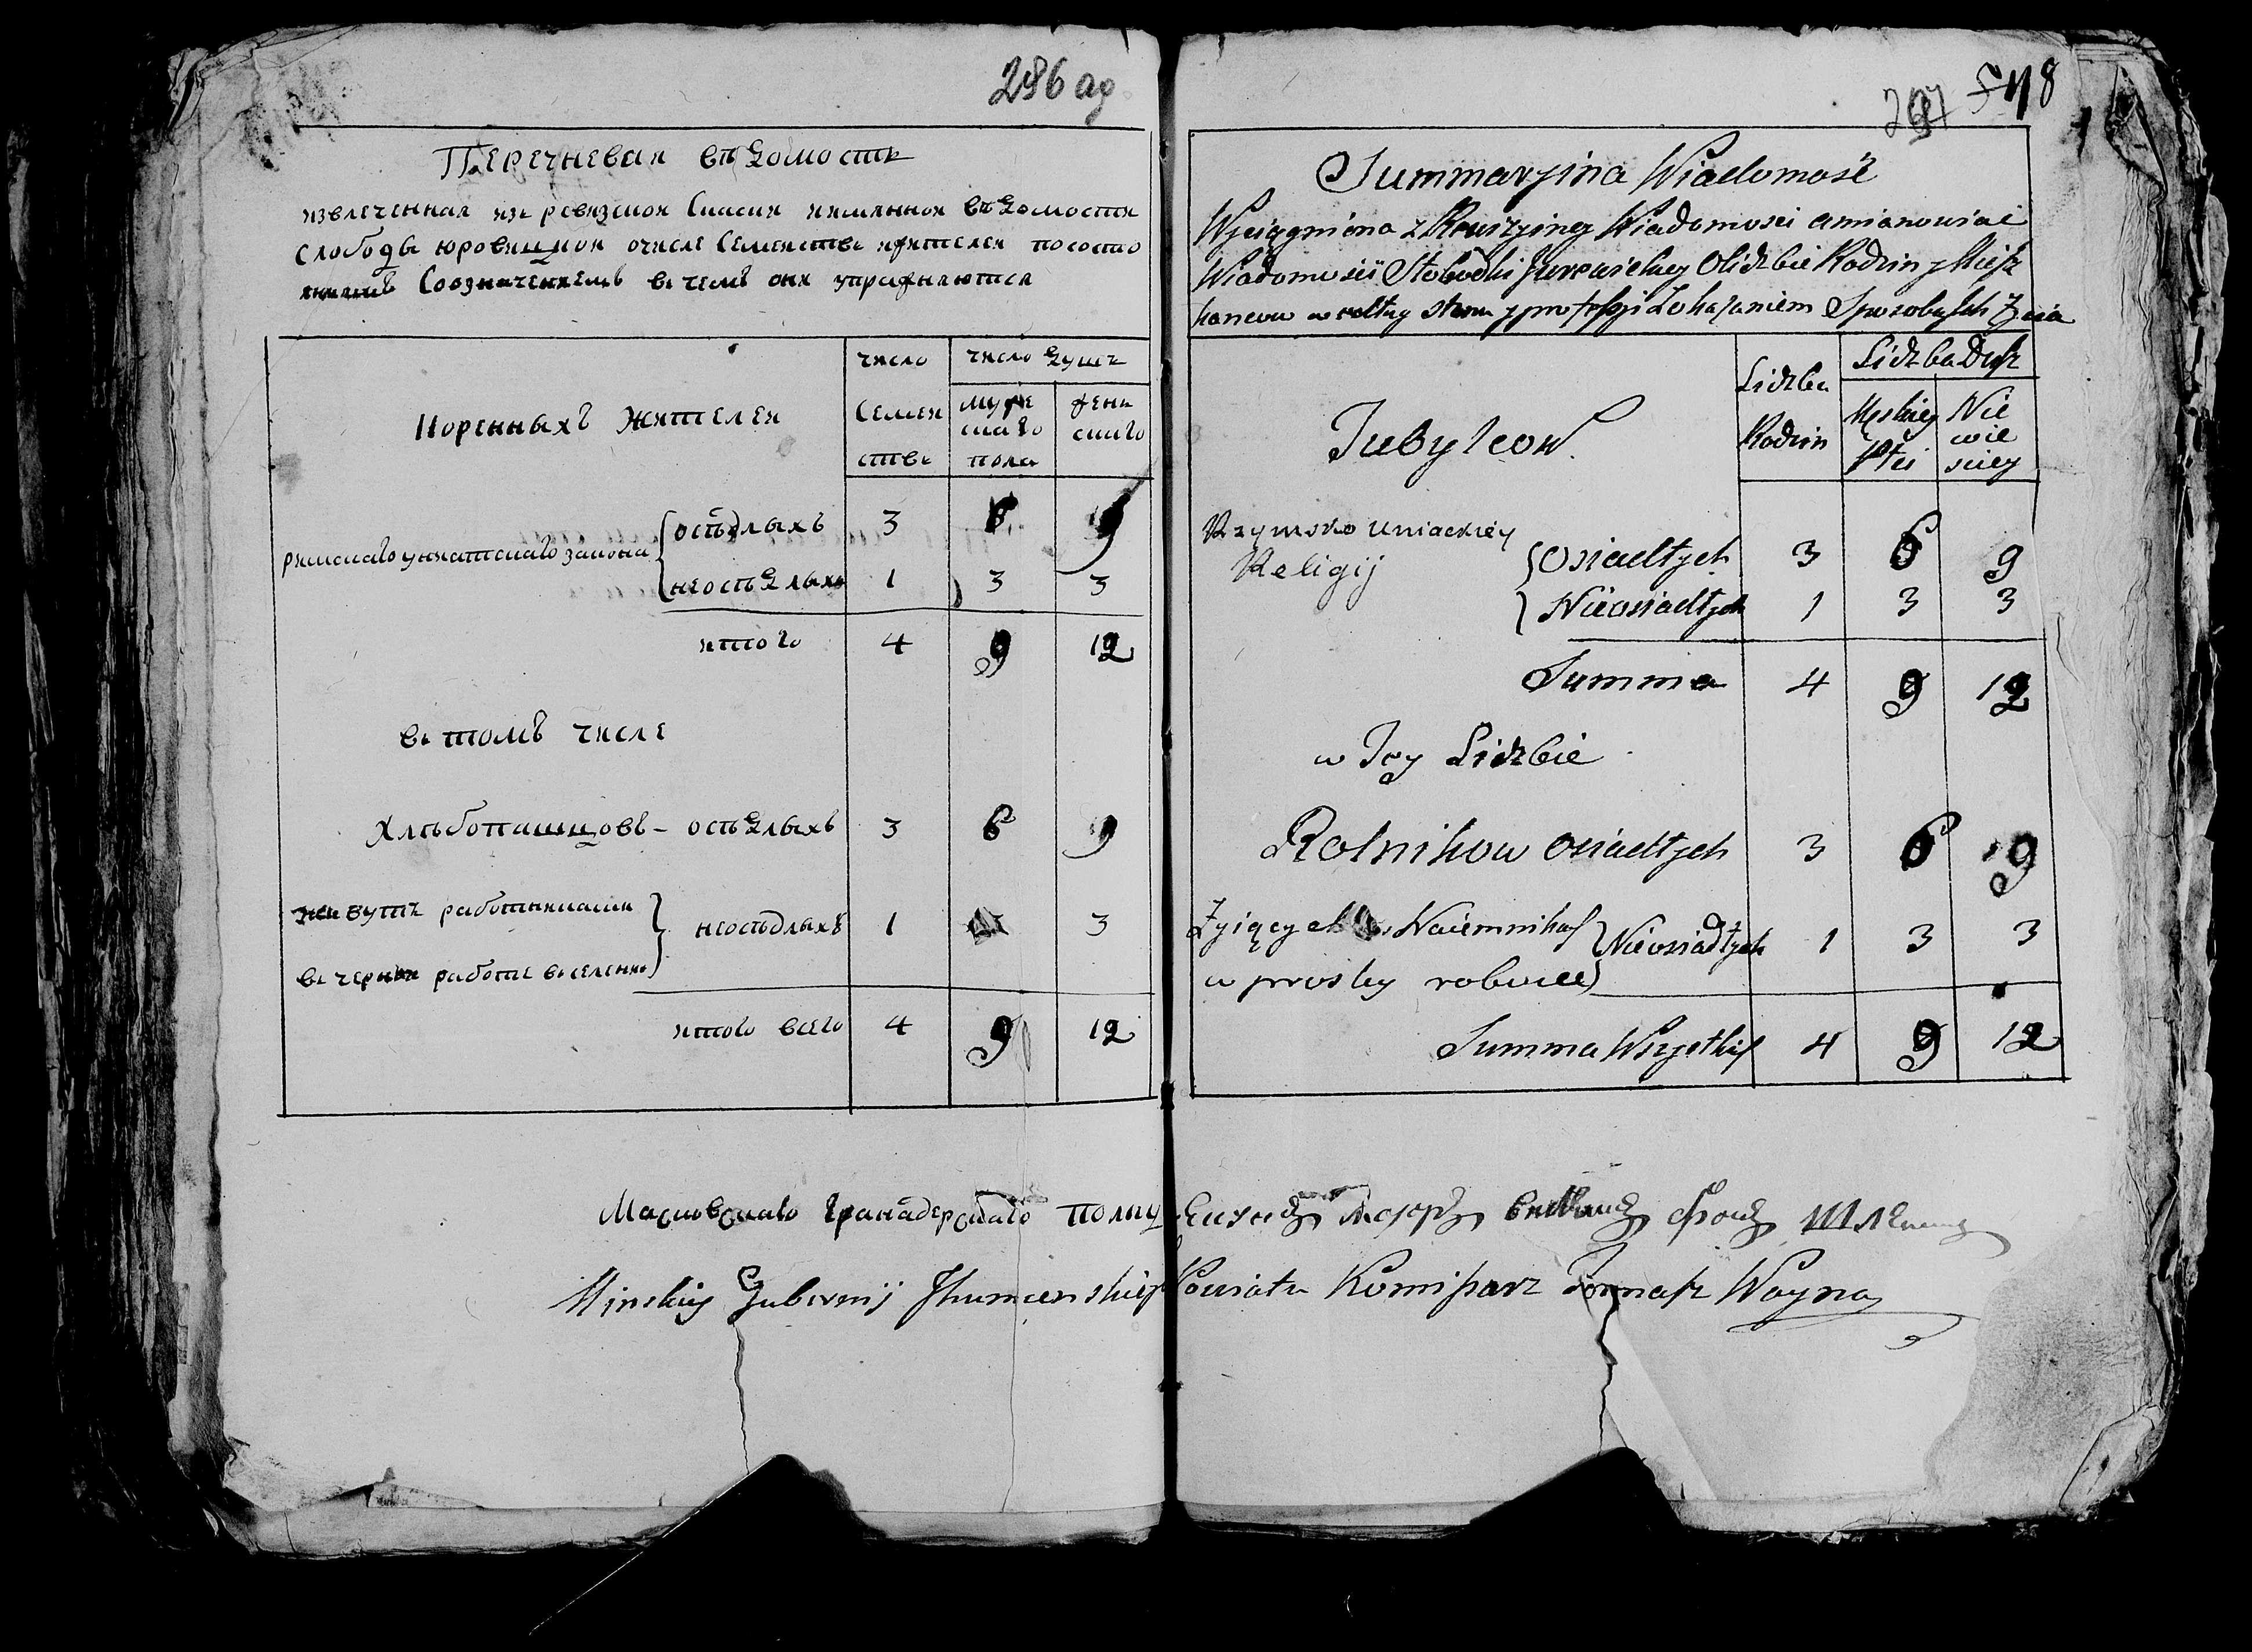 286 аф
Перечневая вѣдомость
извлеченная изъ ревизской Сказки имянной вѣдомости
Слободы юровицкой очисле Семействъ жителей посостоя
ниямъ Созначениемъ въ чемъ они упражняются
Коренныхъ жителей
число
Семей
ствъ
число душъ
муже
скаго
пола
жен
скаго
римскаго униатскаго закона
осѣдлыхъ 3 6 9
неосѣдлыхъ 1 3 3
итого 4 9 12
въ томъ числе
хлѣбопашцовъ - осѣдлыхъ 3 6 9
живутъ работниками
въ черной работе
неосѣдлыхъ 1 3
итого всего 4 9 12
578
Summaryina Wiadomość
Wyciągnióna z Rewizyiney Wiadomosci
Wiadomości Słobodki Jurowickiey O liczbie Rodzin y Miesz
kancow wedlug stanu y professyi Sposobu Ich Życia
Tubylcow
Liczba
Rodzin
Liczba Dusz
Męskiey
Płci
Nie
wie
sciey
Rzymsko Uniackiéy
Religij
Osiadłych 3 6 9
Nieosiadłych 1 3 3
Summa 4 9 12
w Tey Liczbie
Rolnikow Osiadłych 3 6 9
Żyiących Naiemnikaf
w prostey robocie
Nieosiadłych 1 3 3
Summa Wszystkif 4 9 12
Московскаго Гранадерскаго полку
Minskiey Gubernij Jhumenskiego Powiatu Komissarz Tomasz Woyna